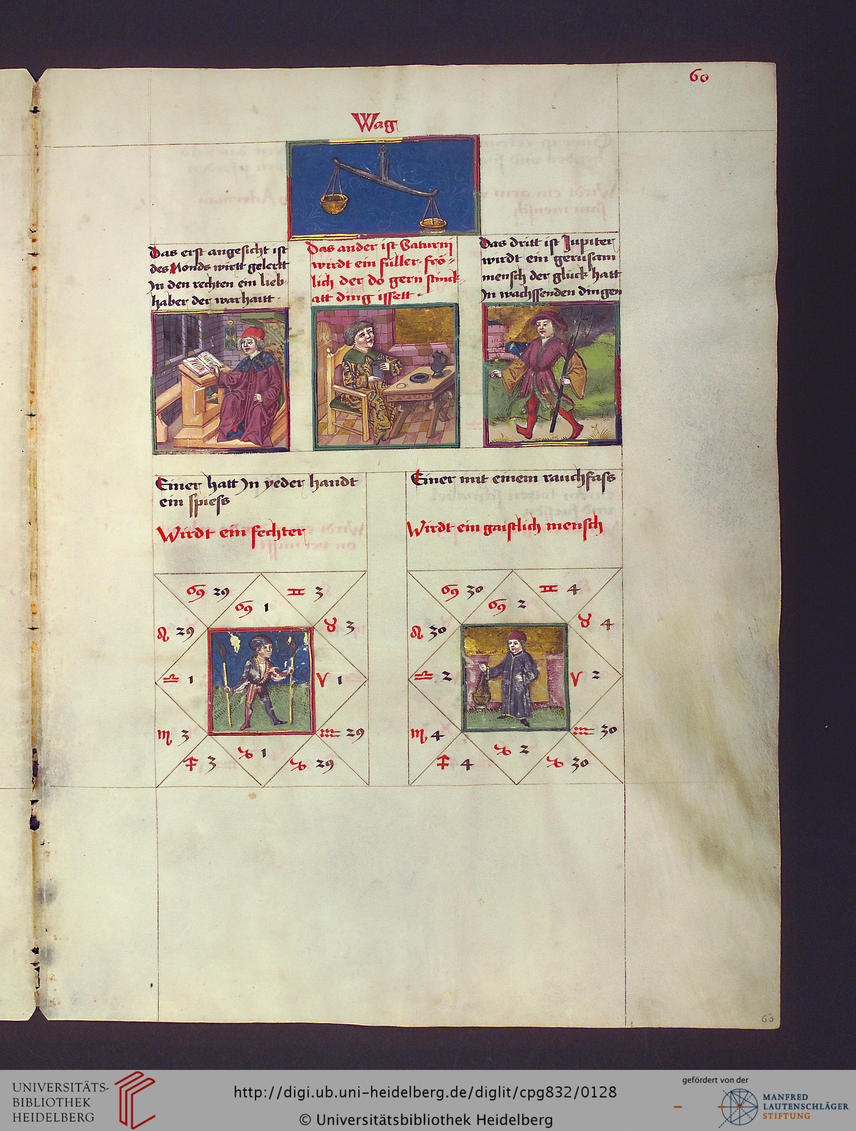 60
Wag
Das erst angesicht ist
des Monds wirtt gelertt
Jn den rechten ein lieb
haber der warhaitt
Das ander ist Saturni
wirdt ein füller frö-
lich der do gern stinck
att ding issett .
Das dritt ist Jupiter
wirdt ein gerüsam
mensch der glück hatt
Jn wachssenden dingen
Einer hatt Jn yeder handt
ein spiess
Wirdt ein fechter
Einer mit einem rauchfass
Wirdt ein gaistlich mensch
♋ 29 ♊ 3
♋ 1
♌ 29 ♉ 3
♎ 1 ♈ 1
♏ 3 ♒ 29
♑ 1
♐ 3 ♑ 29
♋ 30 ♊ 4
♋ 2
♌ 30 ♉ 4
♎ 2 ♈ 2
♏ 4 ♒ 30
♑ 2
♐ 4 ♑ 30
60
UNIVERSITÄTS-
BIBLIOTHEK
HEIDELBERG
http://digi.ub.uni-heidelberg.de/diglit/cpg832/0128
© Universitätsbibliothek Heidelberg
gefördert von der
MANFRED
LAUTENSCHLÄGER
STIFTUNG